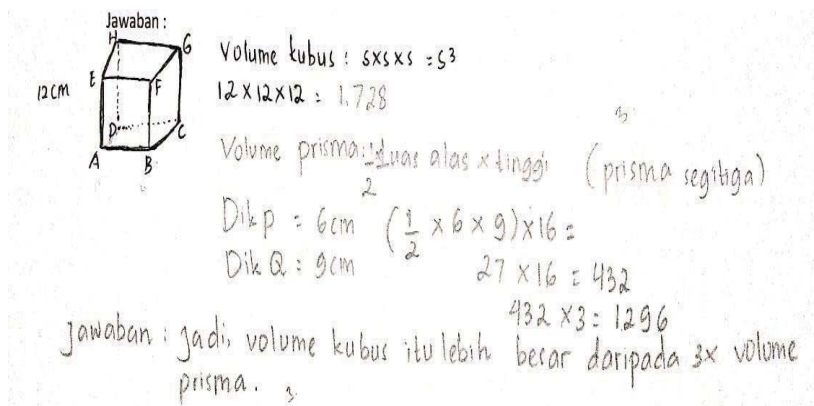 Jawaban :
H
G
E
F
12cm
D
C
A
B
Volume kubus : s×s×s = s³
12×12×12 : 1.728
Volume prisma : 1/2 luas alas × tinggi (prisma segitiga)
Dik P = 6cm (1/2 × 6 × 9) × 16 =
Dik Q : 9cm 27 × 16 = 432
432 × 3 = 1296
Jawaban : Jadi, volume kubus itu lebih besar daripada 3x volume
prisma.